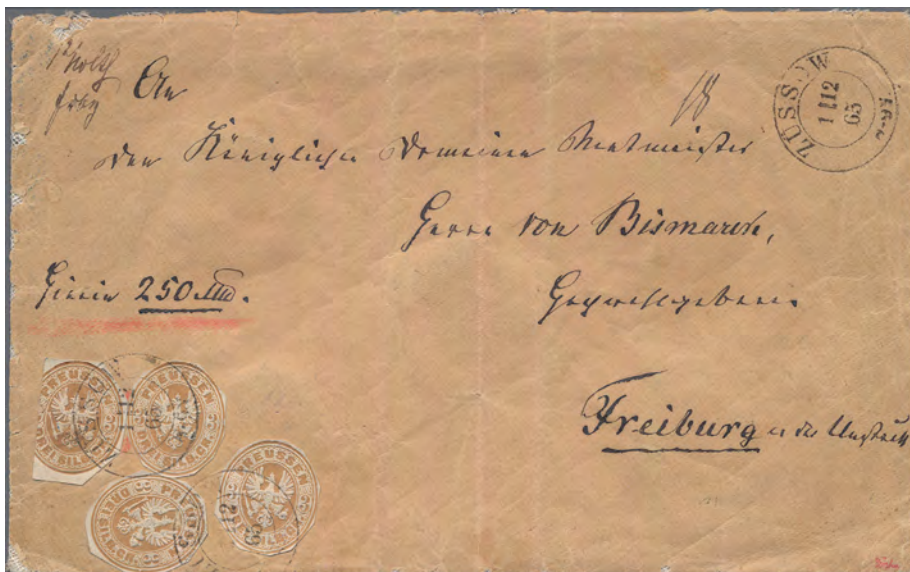 An
ZÜSSOW
1 112
65
18
den Königlichen Domainen Rentmeister
Herrn von Bismarck,
Hierin 250
Hochwohlgeboren
Freiburg a. der Unstrutt
PREUSSEN DREI SILB.GR.
PREUSSEN DREI SILB.GR.
PREUSSEN DREI SILB.GR.
PREUSSEN DREI SILB.GR.